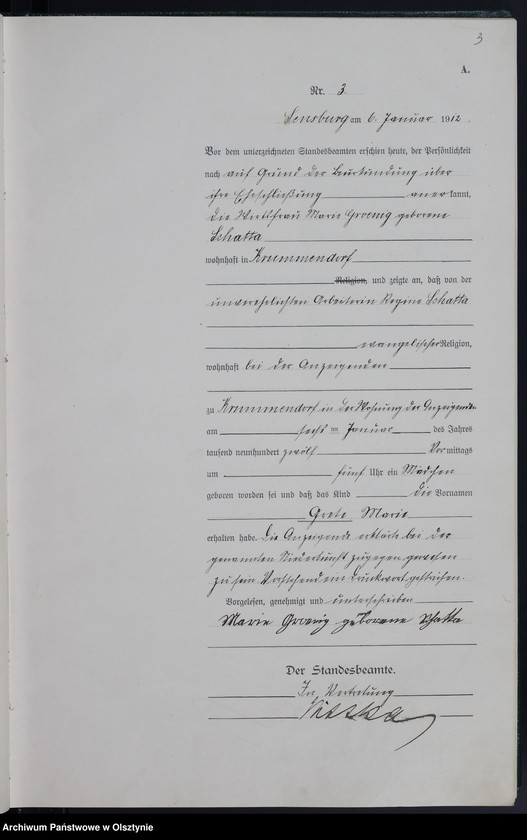 3
A.
Nr. 3
Sensburg am 6. Januar 1912
Vor dem unterzeichneten Standesbeamten erschien heute, der Persönlichkeit
nach auf Grund der Beurkundung über
ihre Eheschließung anerkannt,
die Wirtsfrau Marie Groenig geborene
Schatta
wohnhaft in Krummendorf
Religion, und zeigte an, daß von der
unverehelichten Arbeiterin Regine Schatta
evangelischer Religion,
wohnhaft bei der Anzeigenden
zu Krummendorf in der Wohnung der Anzeigenden
am sechs ten Januar des Jahres
tausend neunhundert zwölf Vormittags
um fünf Uhr ein Mädchen
geboren worden sei und daß das Kind die Vornamen
Grete Marie
erhalten habe. Die Anzeigende erklärte bei der
genannten Niederkunft zugegen gewesen
zu sein. Vorstehend ein Druckwort gestrichen.
Vorgelesen, genehmigt und unterschrieben
Marie Groenig geborene Schatta
Der Standesbeamte.
In Vertretung
Archiwum Państwowe w Olsztynie